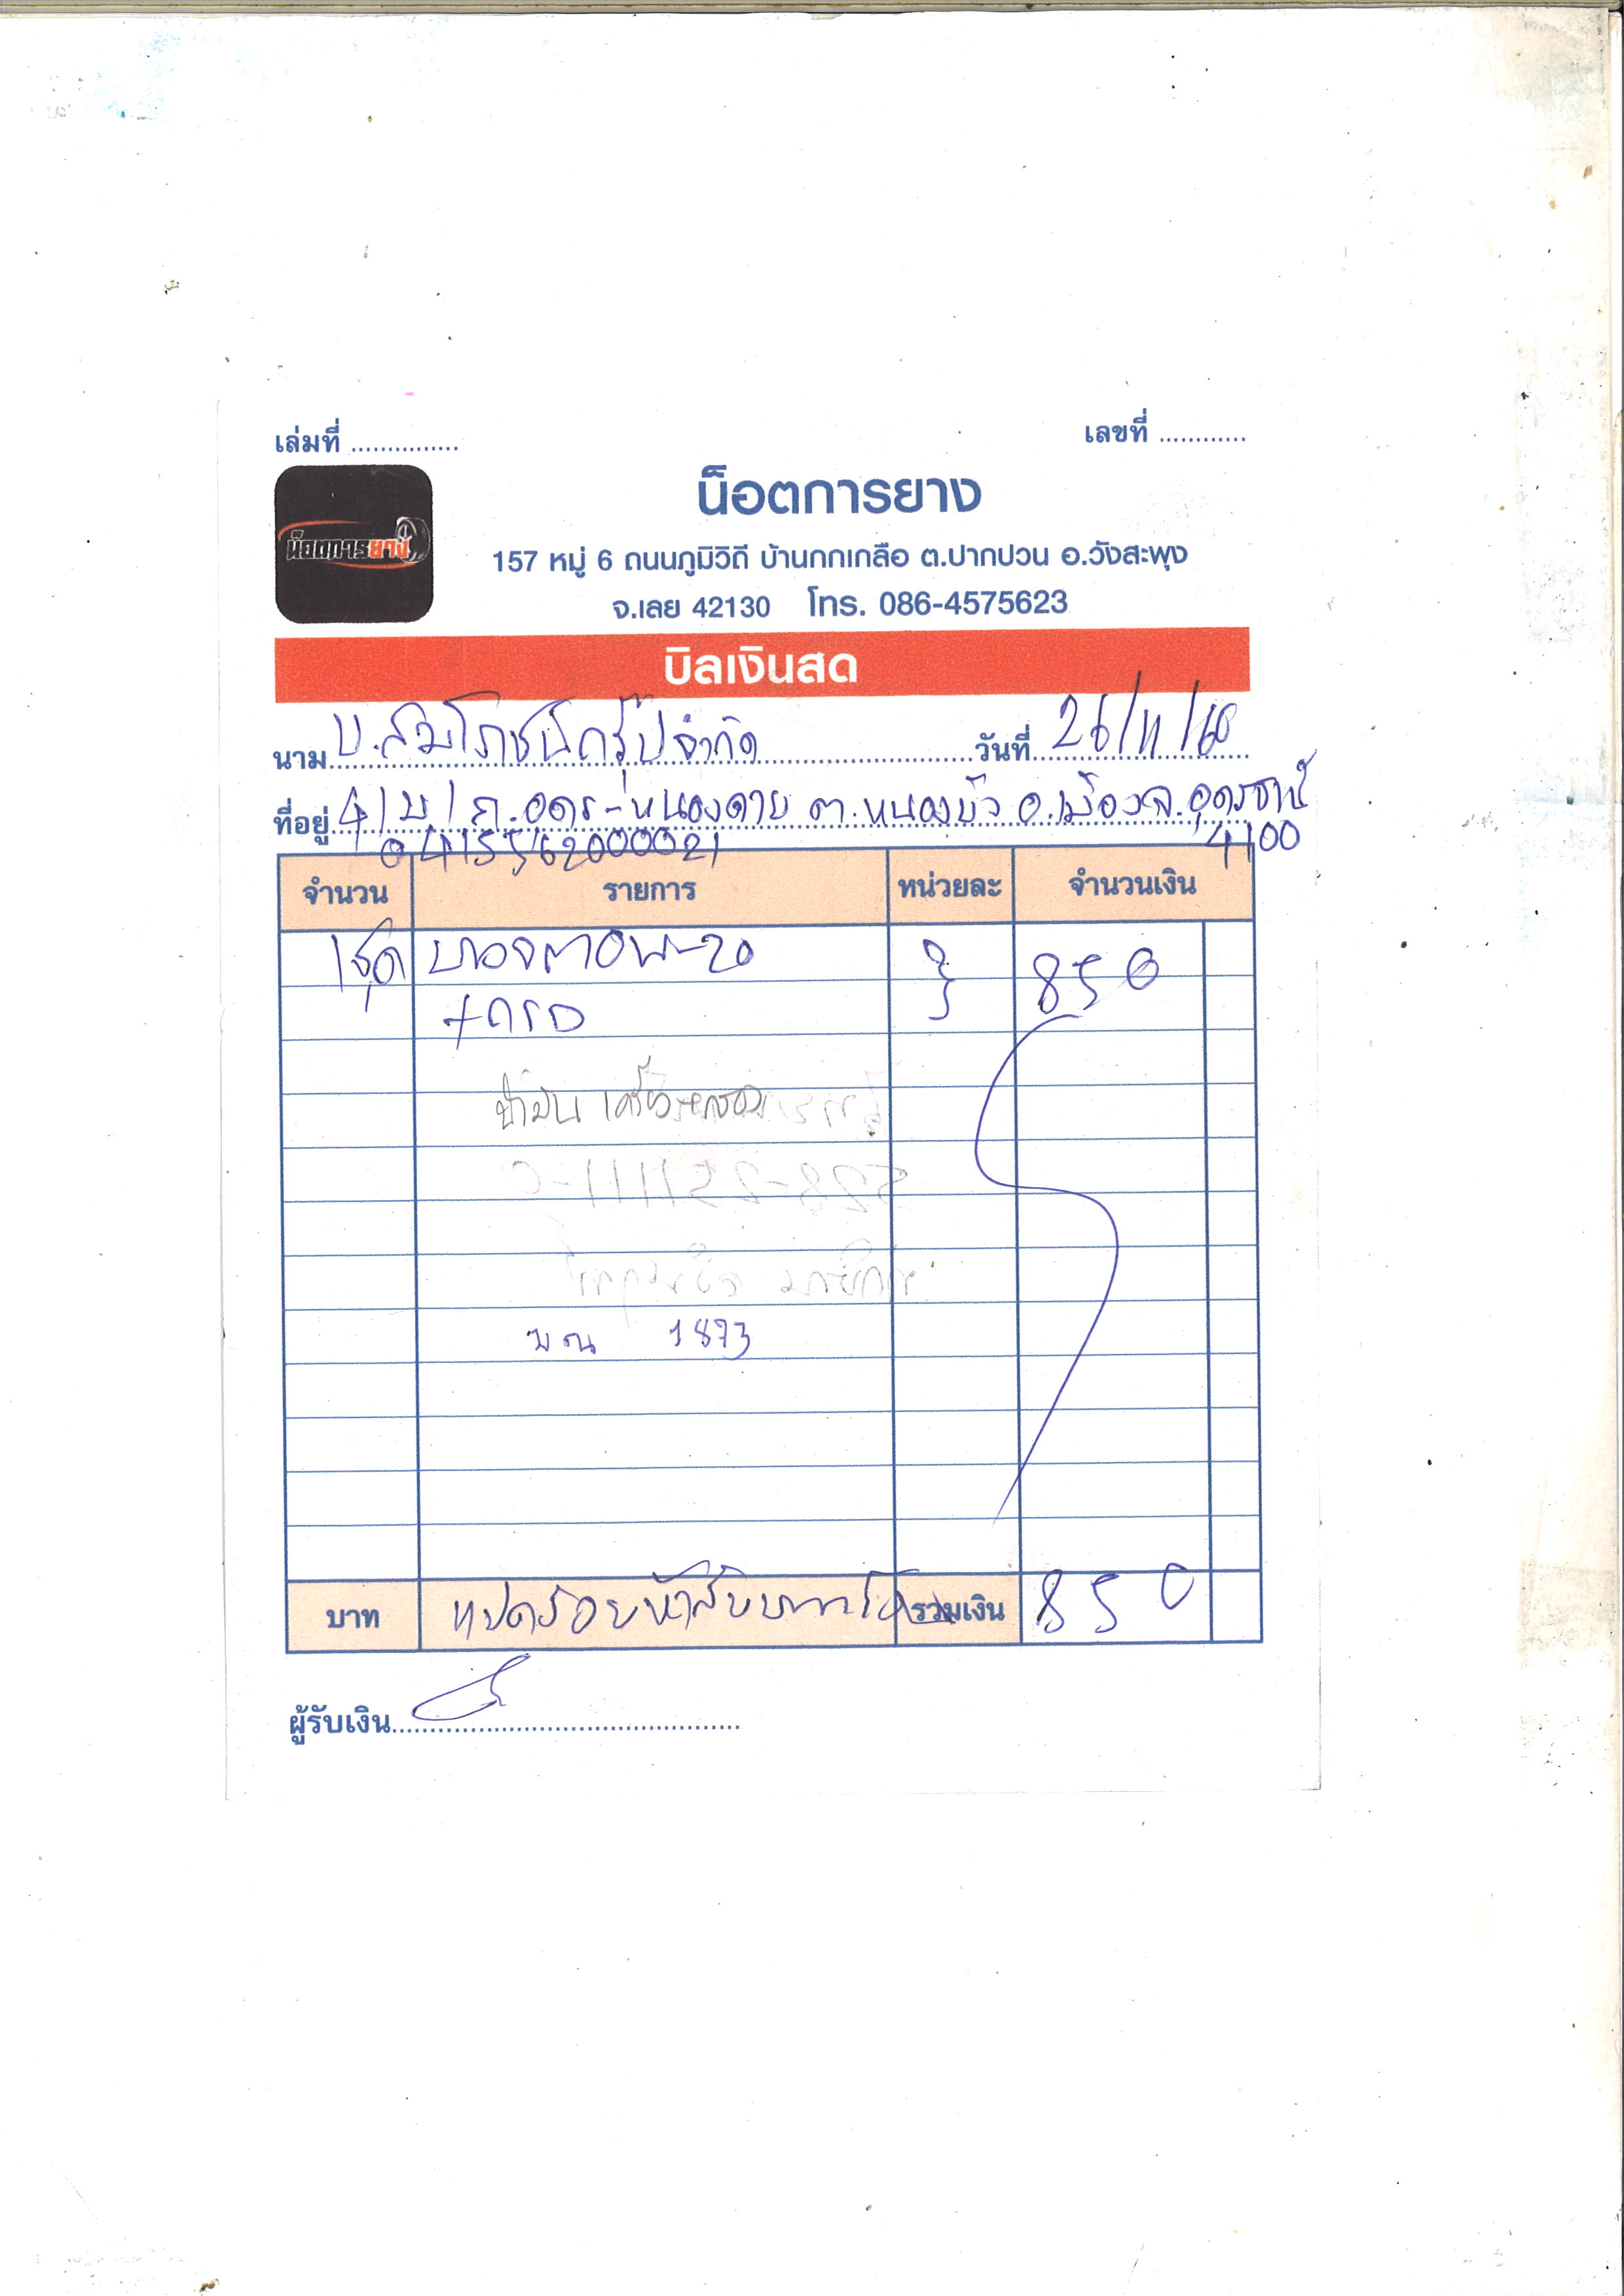 เล่มที่ ............... เลขที่ ............
น็อตการยาง
น็อตการยาง
157 หมู่ 6 ถนนภูมิวิถี บ้านกกเกลือ ต.ปากปวน อ.วังสะพุง
จ.เลย 42130 โทร. 086-4575623
บิลเงินสด
นาม บ. กรุ๊ปจำกัด วันที่ 26/11/68
ที่อยู่ ถ.อุดร-หนองคาย ต.หนองบัว อ.เมือง จ.อุดรธานี
0415562000021 41100
จำนวน รายการ หน่วยละ จำนวนเงิน
1ชุด 850
น้ำมันเครื่อง
528-251111-C
บณ 1873
บาท แปดร้อยห้าสิบบาท รวมเงิน 850
ผู้รับเงิน